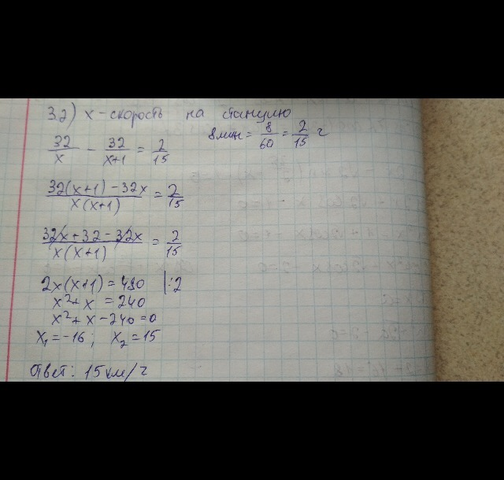 32) x - скорость на станцию
8 мин = 8/60 = 2/15 ч
32/x - 32/x+1 = 2/15
32(x+1) - 32x / x(x+1) = 2/15
32x + 32 - 32x / x(x+1) = 2/15
2x(x+1) = 480 |:2
x² + x = 240
x² + x - 240 = 0
x₁ = -16; x₂ = 15
Ответ: 15 км/ч